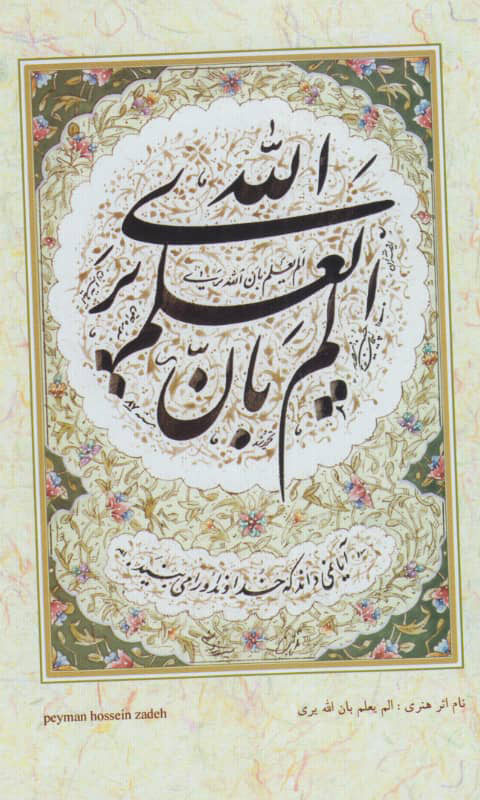 الم یعلم بانّ اللّه یری
الم یعلم بان الله یری
آیا نمی‌داند که خداوند او را می‌بیند
peyman hossein zadeh
نام اثر هنری : الم یعلم بان الله یری